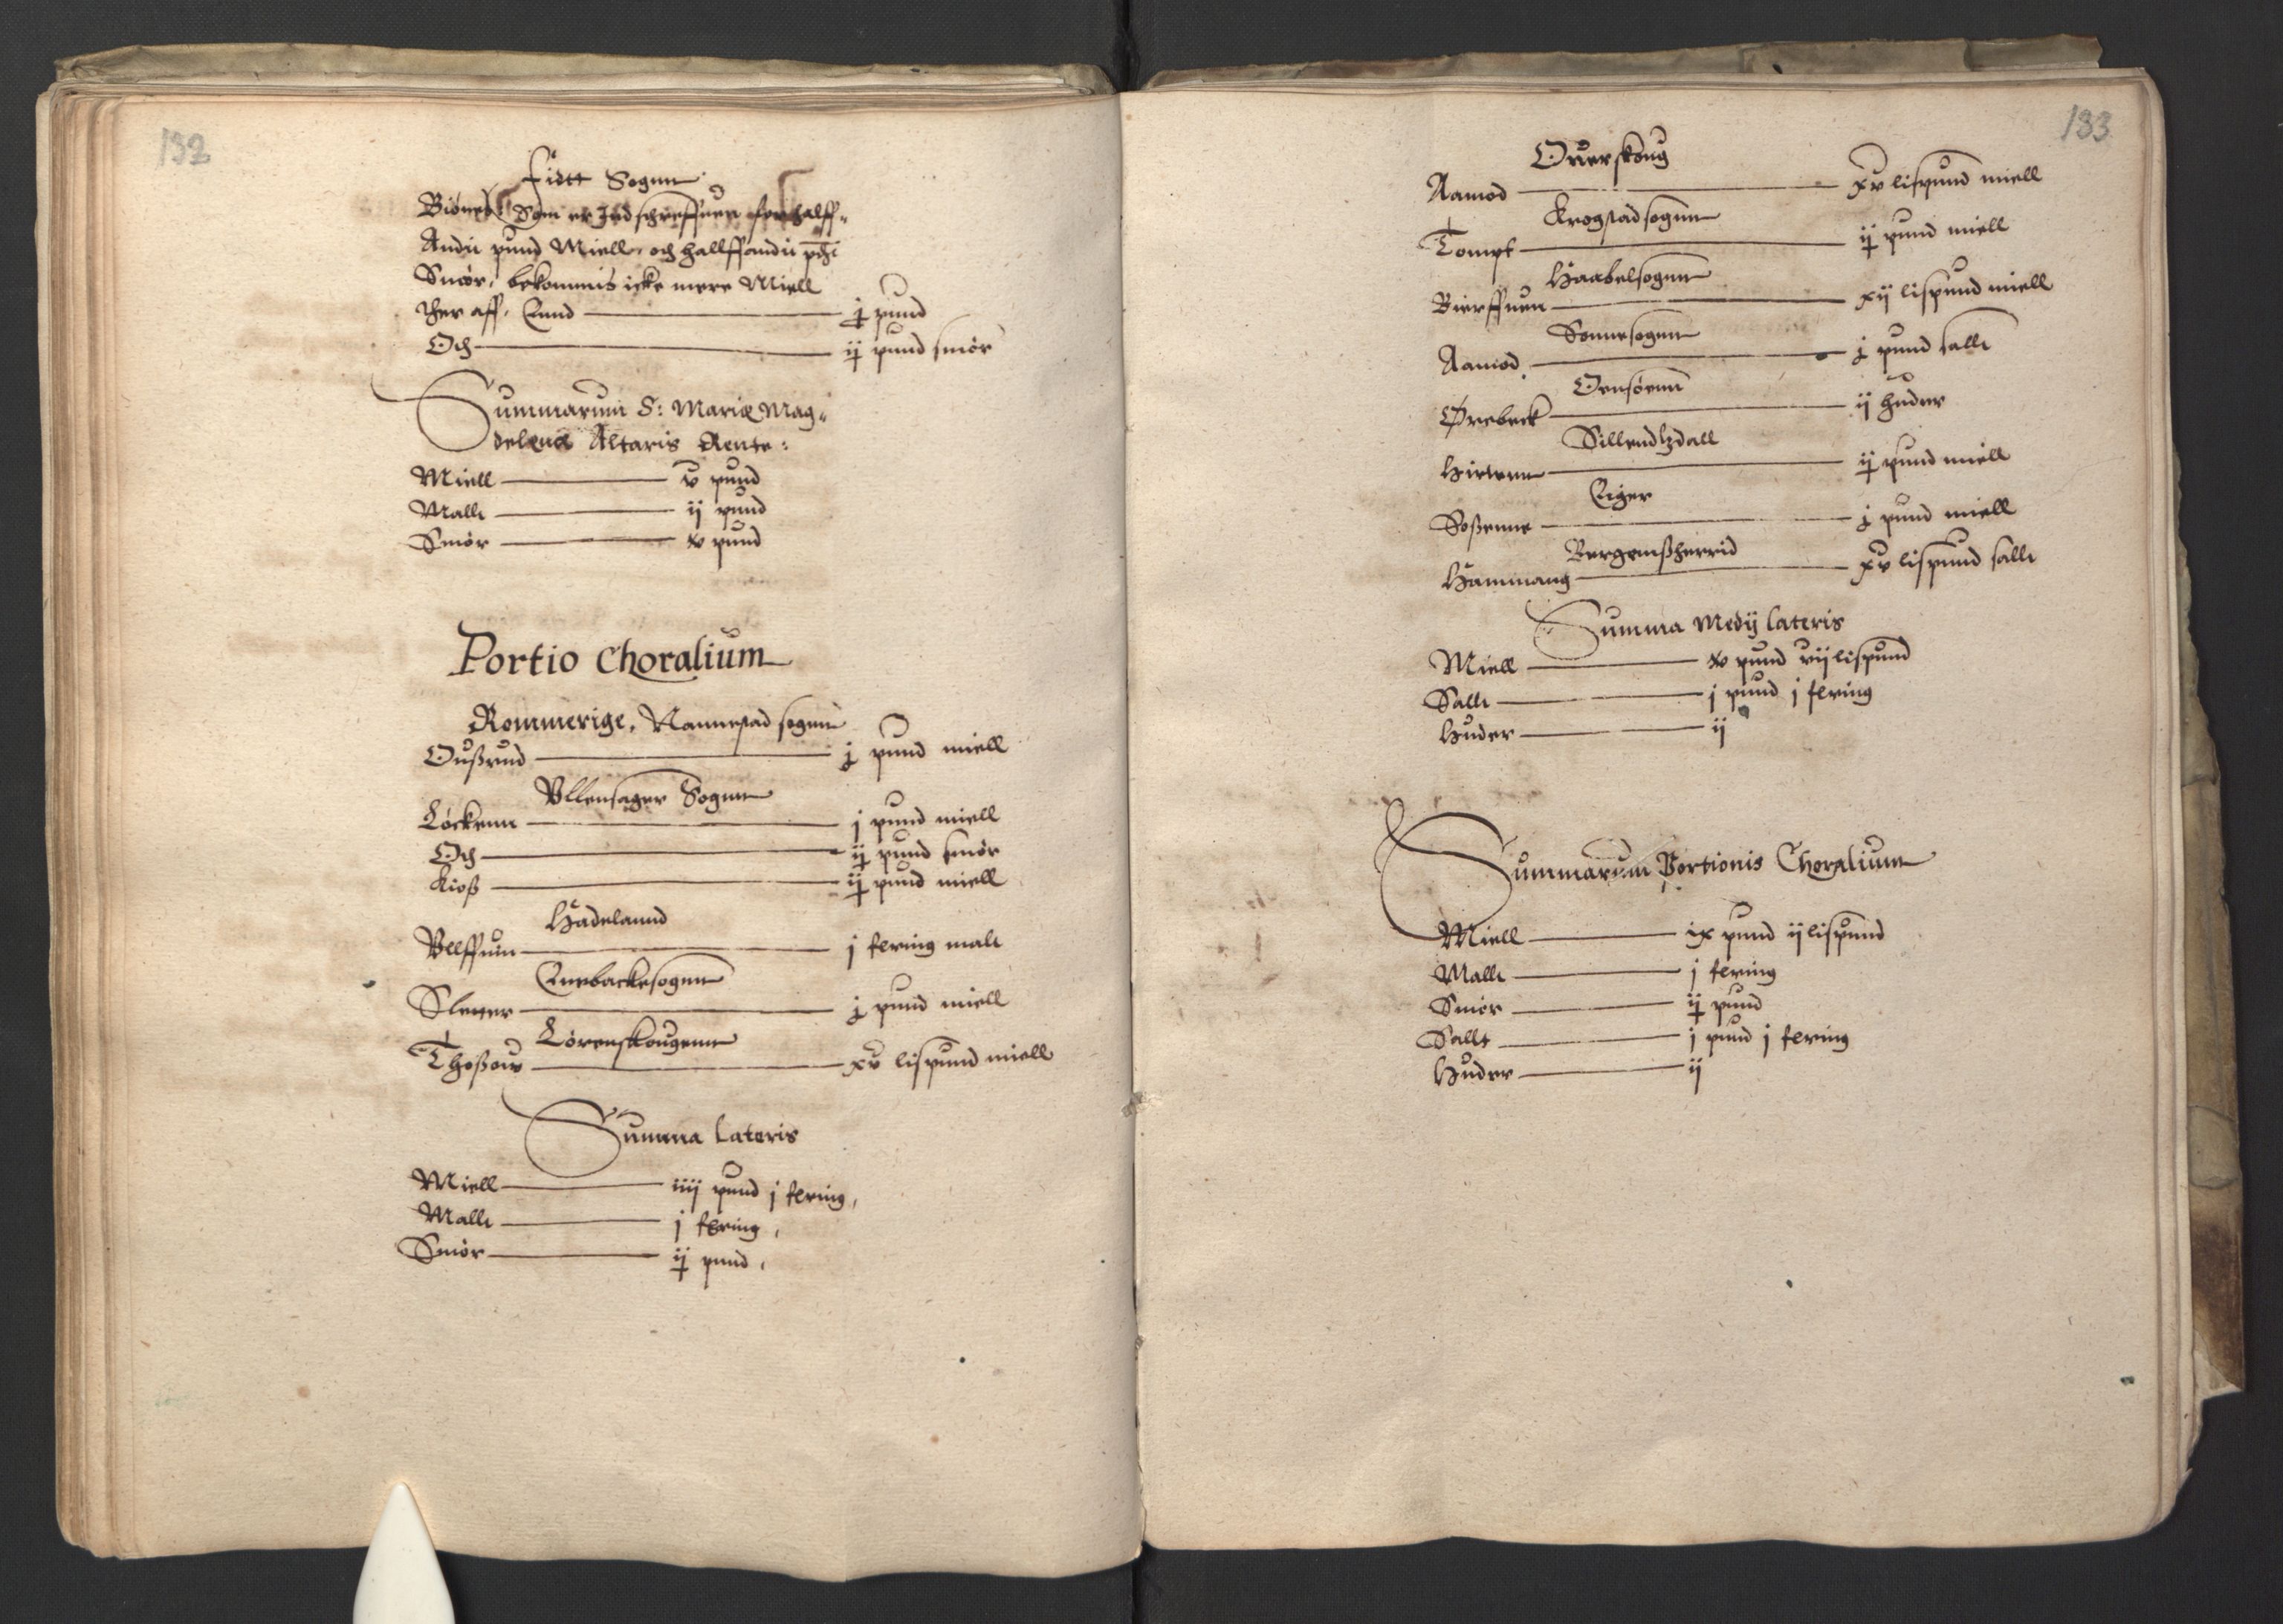 132
Fidtt Sognn
Biønn Som er Indschreffuen for halff¬
Andii pund Miell, och hallffandii pd̄t
Smør, bekommis icke mere Miell
ther aff, End j pund
Och ij pund smør
Summarum S: Mariæ Mag¬
delenæ Altaris Rente:
Miell v pund
Mallt ij pund
Smør xv pund
Portio Choralium
Rommerige, Nannestad sognn
Oußrud j pund miell
Vllensager Sognn
Løckenn j pund miell
Och ij pund smør
Kioß ij pund miell
Hadelannd
Vllffuin j fering malt
Enebackesognn
Sletter j pund miell
Lørenskougenn
Thoßou xv lispund miell
Summa Lateris
Miell iiij pund j fering,
Mallt j fering,
Smør ij pund,
133
Ouerskoug
Aamod xv lispund miell
Krogstadsognn
Tompt ij pund miell
Haabelsognn
Bierffuen xij lispund miell
Sonnesognn
Aamod j pund sallt
Oensøenn
Ørebeck ij huder
Sillendtzdall
Hiertenn ij pund miell
Eiger
Soßenne j pund miell
Bergemßherrid
Hammang xv lispund sallt
Summa Medij Lateris
Miell xv pund vij lispund
Sallt j pund j fering
Huder ij
Summarum Portionis Choralium
Miell ix pund ij lispund
Mallt j fering
Smør ij pund
Sallt j pund j fering
Huder ij